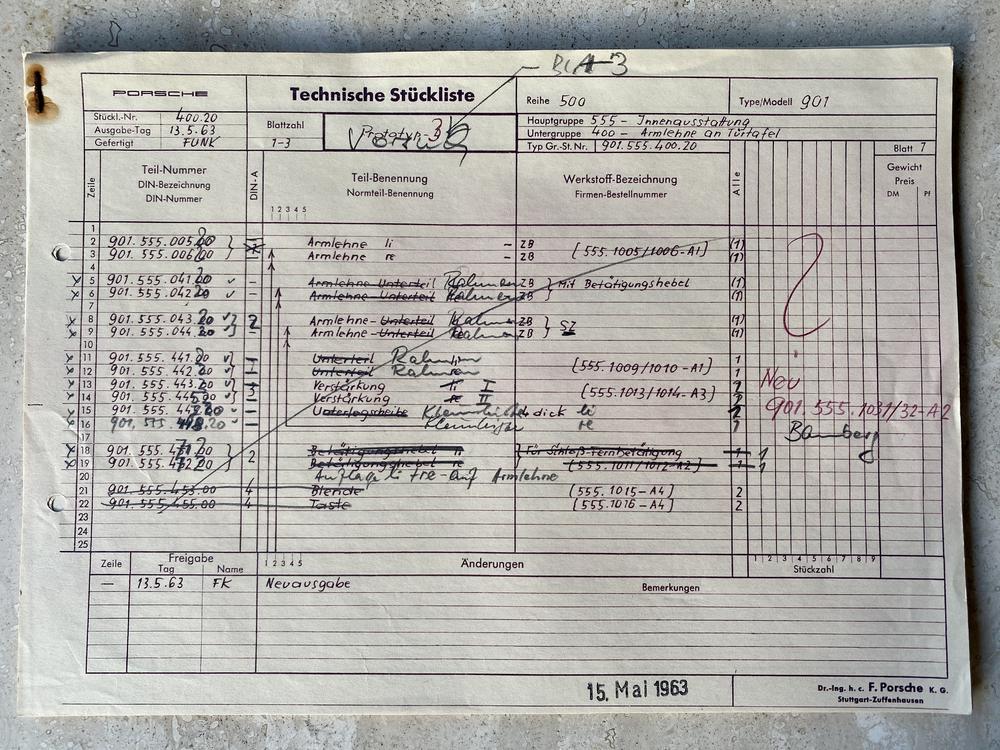 BL 1-3
PORSCHE
Technische Stückliste
Reihe 500
Type/Modell 901
Stückl.-Nr. 400.20
Ausgabe-Tag 13.5.63
Gefertigt FUNK
Blattzahl
1-3
Prototyp
Hauptgruppe 555 - Innenausstattung
Untergruppe 400 - Armlehne an Türtafel
Typ Gr.-St. Nr. 901.555.400.20
Blatt 1
Zeile
Teil-Nummer
DIN-Bezeichnung
DIN-Nummer
DIN-A
Teil-Benennung
Normteil-Benennung
1 2 3 4 5
Werkstoff-Bezeichnung
Firmen-Bestellnummer
Alle
Gewicht
Preis
DM Pf
1
2 901.555.005.20 Armlehne li - ZB [555.1005/1006-A1] (1)
3 901.555.006.00 Armlehne re - ZB (1)
4
5 901.555.041.20 - Armlehne-Unterteil Rahmen ZB Mit Betätigungshebel (1)
6 901.555.042.20 - Armlehne-Unterteil Rahmen ZB (1)
7
8 901.555.043.20 2 Armlehne-Unterteil Rahmen ZB SZ (1)
9 901.555.044.20 Armlehne-Unterteil Rahmen ZB (1)
10
11 901.555.441.20 Unterteil Rahmen [555.1009/1010-A1] 1
12 901.555.442.20 Unterteil Rahmen 1
13 901.555.443.20 Verstärkung li I [555.1013/1014-A3] 2
14 901.555.445.20 Verstärkung re II 2
15 901.555. Unterlegscheibe dick li 2
16 901.555. .20 re
17
18 901.555.471.20 2 Betätigungshebel li Für Schloß-Fernbetätigung 1 1
19 901.555.472.20 Betätigungshebel re [555.1011/1012-A2] 1
20 Auflage li + re - auf Armlehne
21 901.555.453.00 4 Blende [555.1015-A4] 2
22 901.555.455.00 4 Taste [555.1016-A4] 2
23
24
25
Neu
901.555.1031/32-A2
Bamberg
Zeile
Freigabe
Tag Name
1 2 3 4 5
Änderungen
1 2 3 4 5 6 7 8 9
Stückzahl
— 13.5.63 FK Neuausgabe
Bemerkungen
15. Mai 1963
Dr.-Ing. h. c. F. Porsche K. G.
Stuttgart-Zuffenhausen